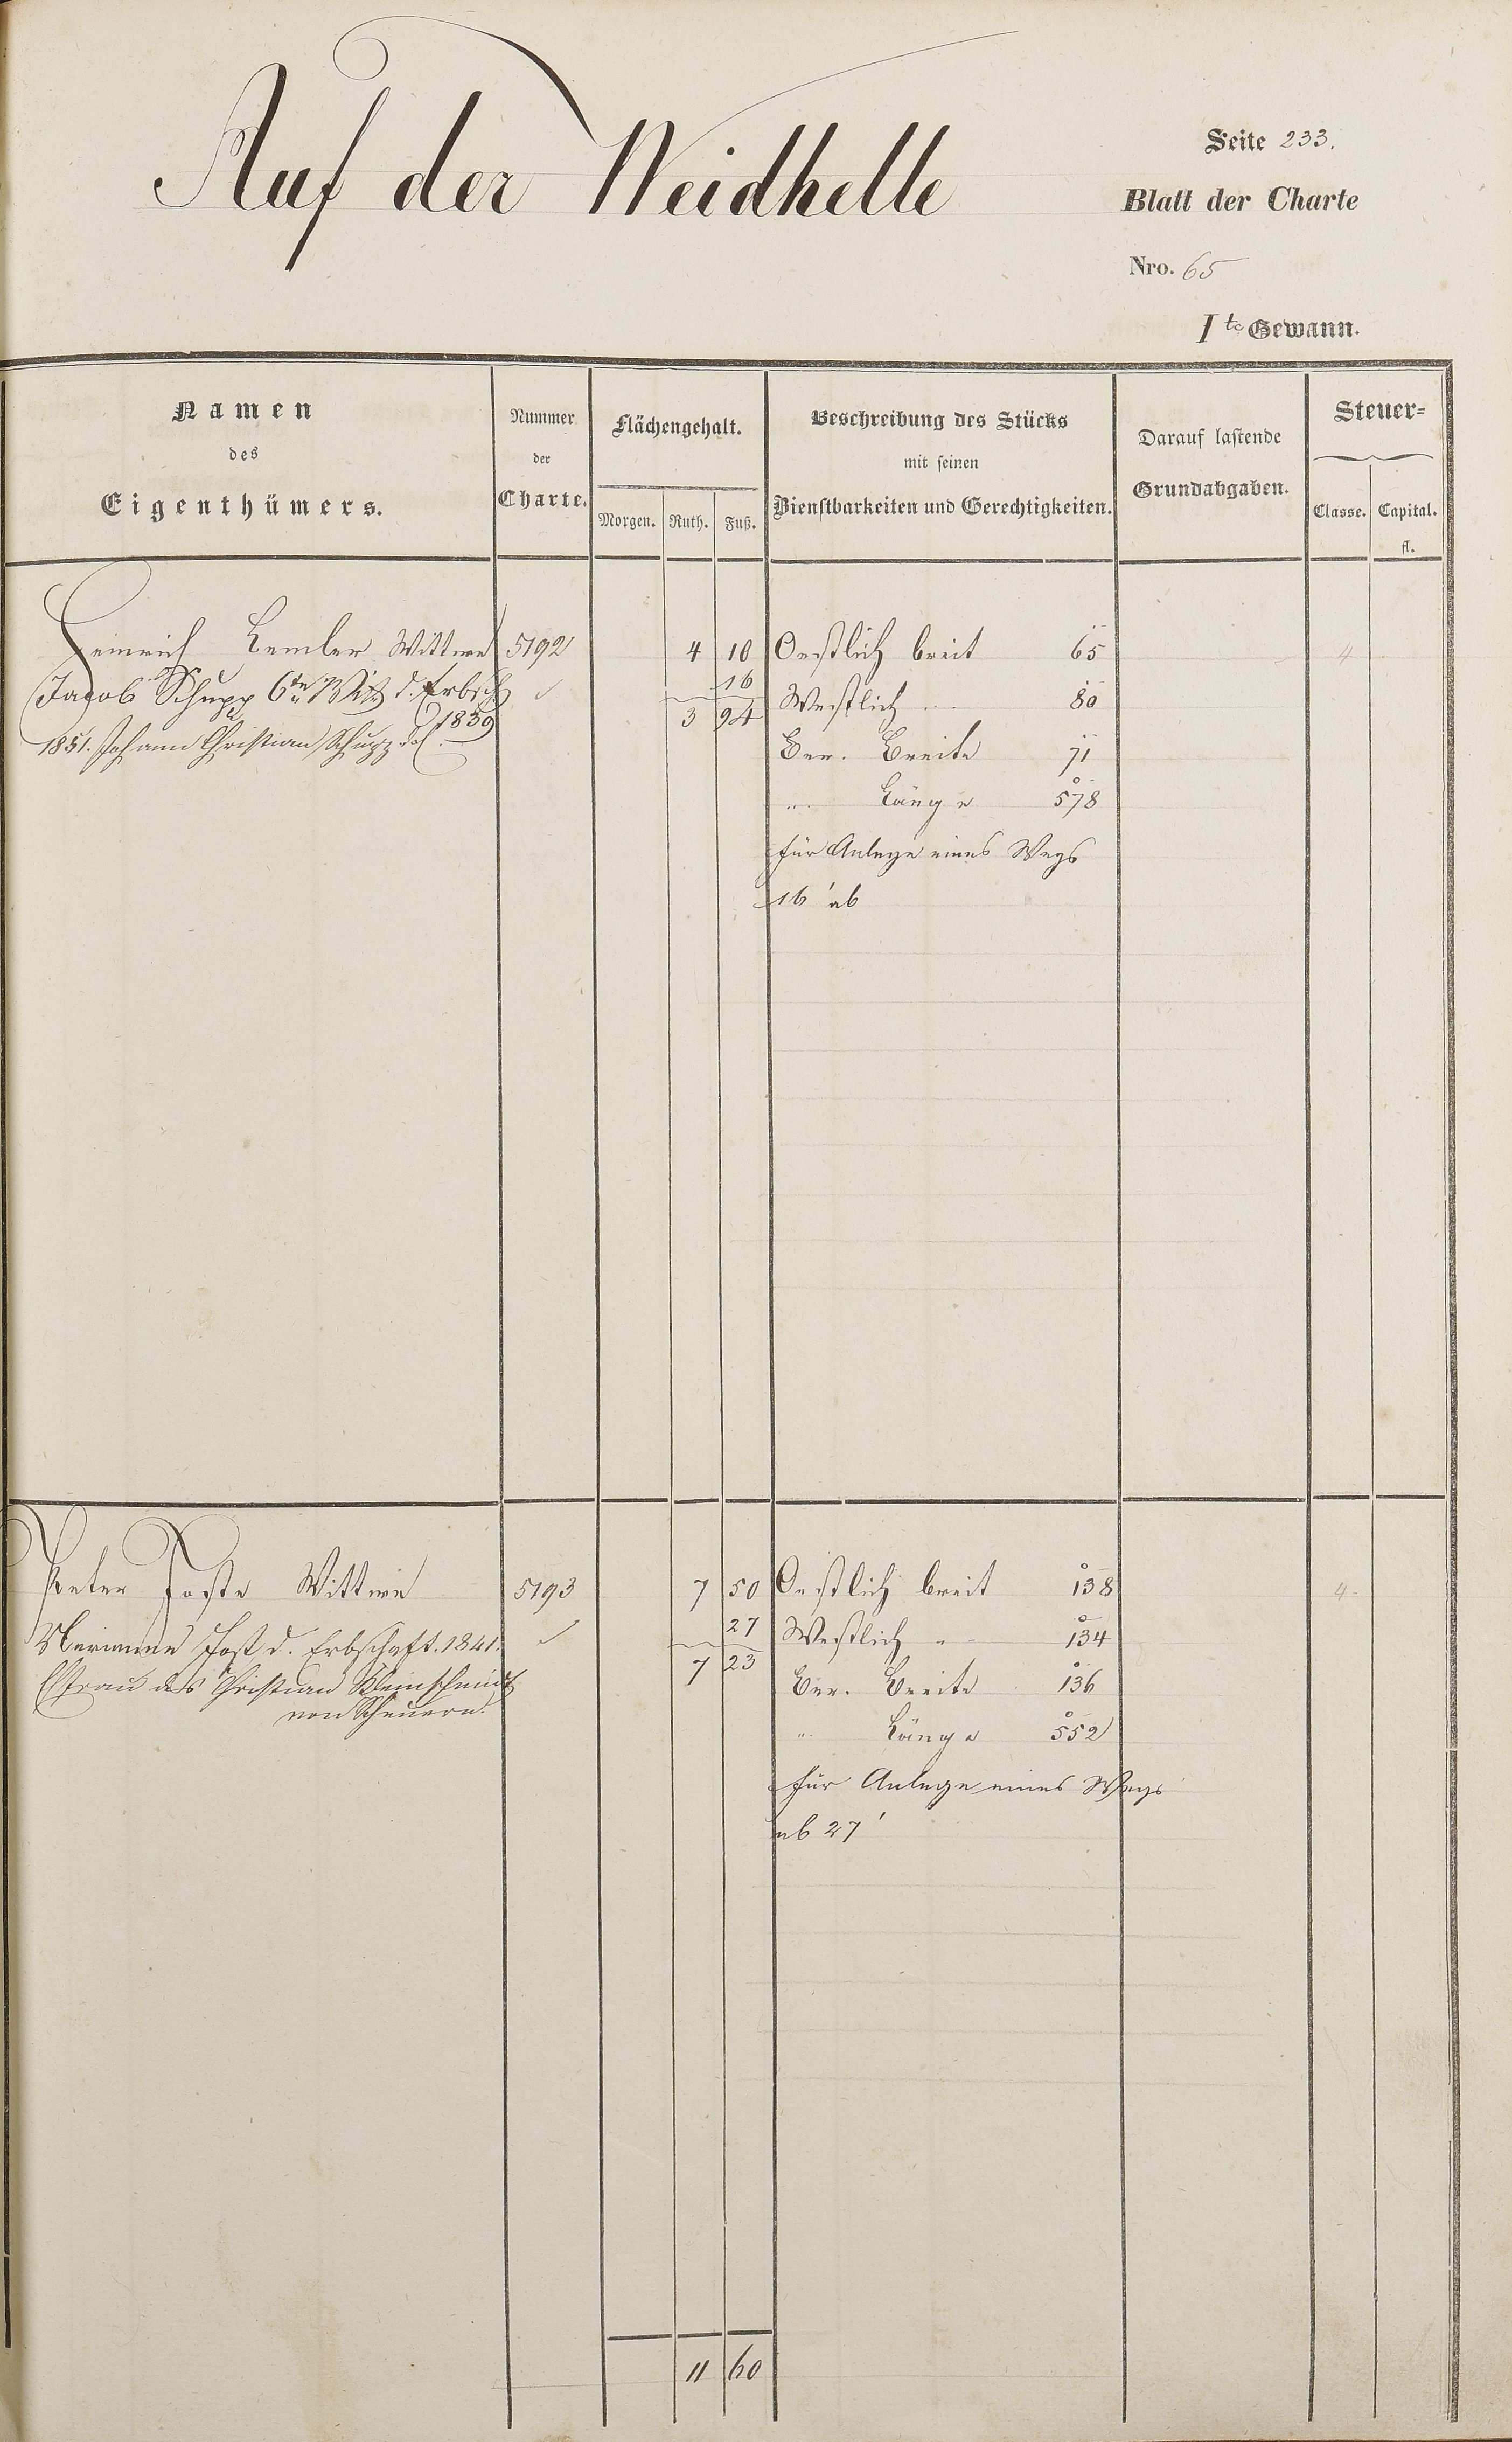 Auf der Weidhelle
Seite 233.
Blatt der Charte
Nro. 65
Ite Gewann.
Namen
des
Eigenthümers.
Nummer
der
Charte.
Flächengehalt.
Morgen. Ruth. Fuß.
Beschreibung des Stücks
mit seinen
Dienstbarkeiten und Gerechtigkeiten.
Darauf lastende
Grundabgaben.
Steuer-
Classe. Capital.
fl.
Heinrich Lemler Wittwe 5192 4 10 Oestlich breit 65 4
Jacob Schupp 6te Wit. d. Erbsch 16
1839 3 94 Westlich " 80
1851. Johann Christian Schupp
Ber. Breite 71
" Länge 578
für Anlage eines Wegs
16' ab
Peter Joste Wittwe 5193 7 50 Oestlich breit 138 4
Marianne Jost d. Erbschaft. 1841. 27 Westlich " 134
Efrau des Christian Kleinschmidt 7 23 Ber. Breite 136
von Scheuern.
" Länge 552
für Anlage eines Wegs
ab 27'
11 60